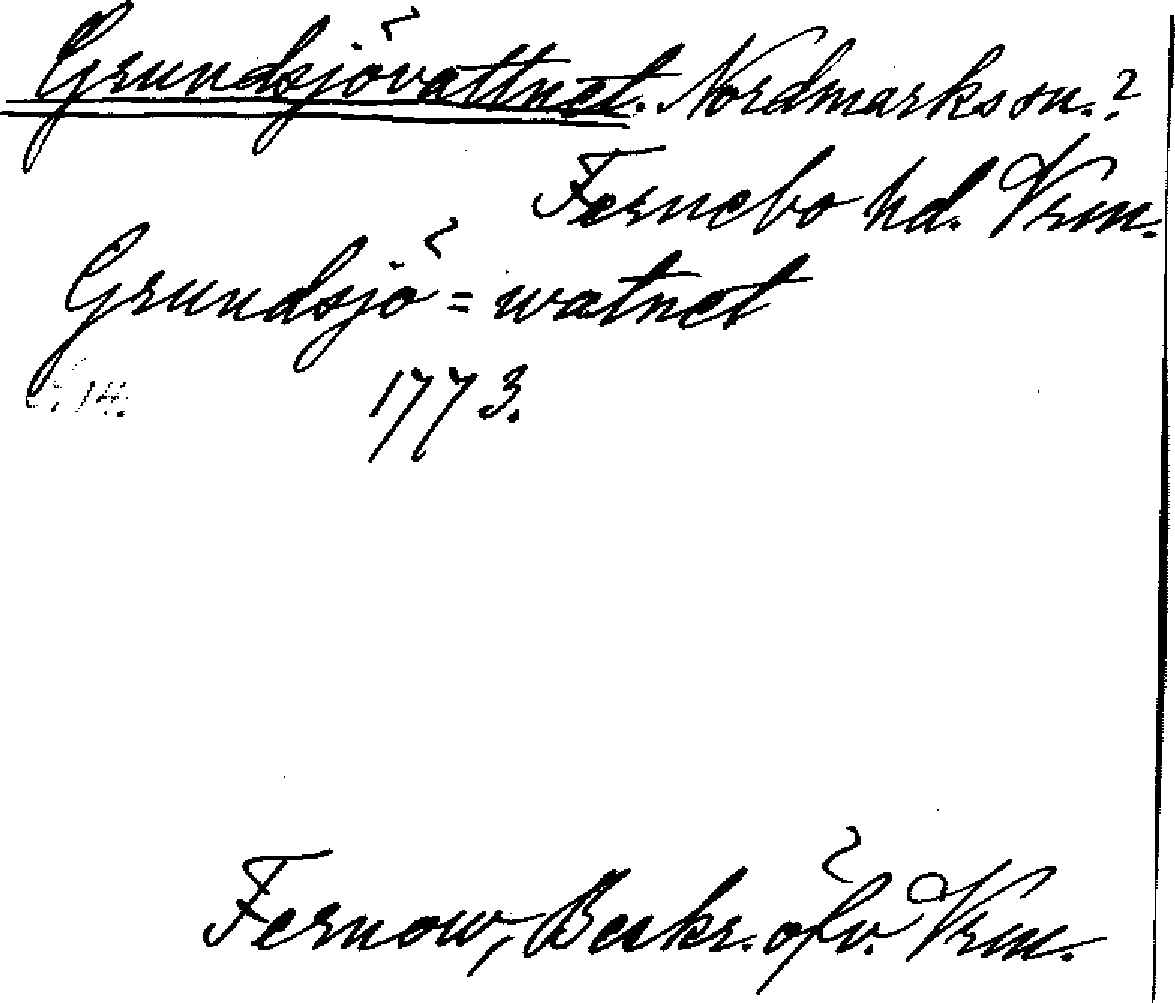 Grundsjövattnet. Nordmarks sn.?
Fernebo hd. Vrm.
Grundsjö=watnet
1773.
Fernow, Beskr. öfv. Vrm.